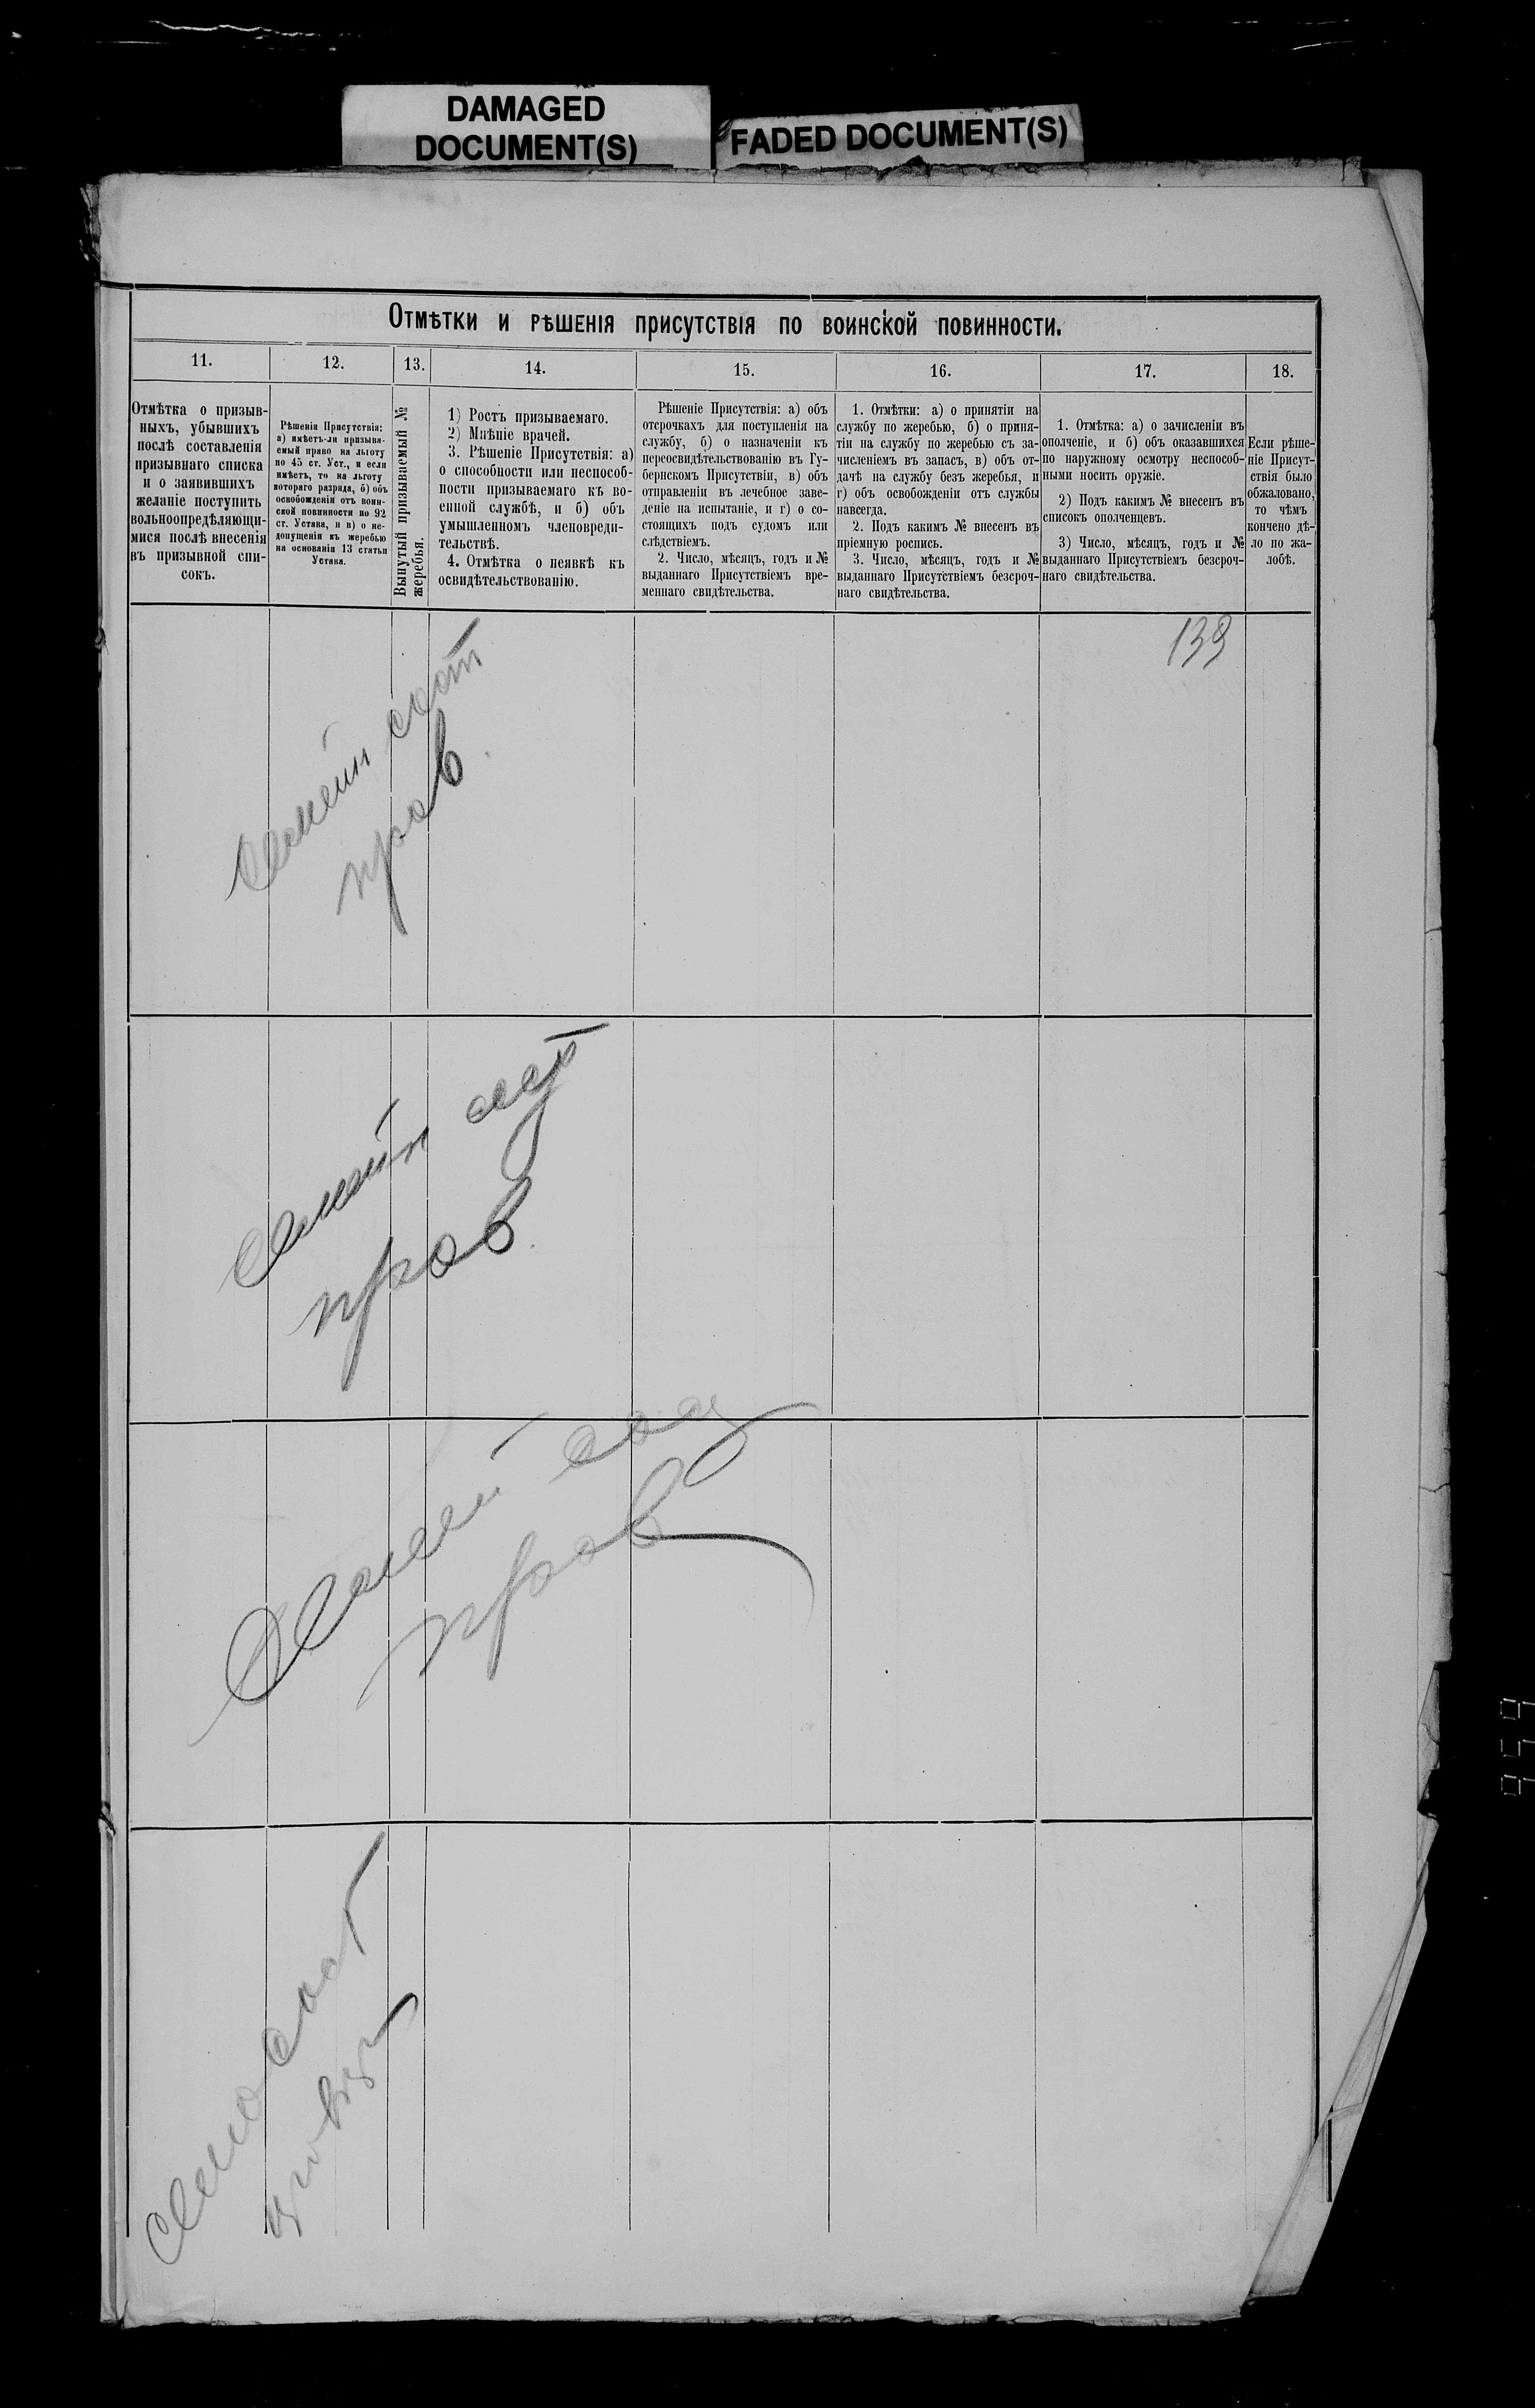 DAMAGED
DOCUMENT(S)
FADED DOCUMENT(S)
Отмѣтки и рѣшенія присутствія по воинской повинности.
11.
Отмѣтка о призыв-
ныхъ, убывшихъ
послѣ составленія
призывнаго списка
и о заявившихъ
желаніе поступить
вольноопредѣляющи-
мися послѣ внесенія
въ призывной спи-
сокъ.
12.
Рѣшенія Присутствія:
а) имѣетъ-ли призыва-
емый право на льготу
по 45 ст. Уст., и если
имѣетъ, то на льготу
котораго разряда, б) объ
освобожденіи отъ воин-
ской повинности по 92
ст. Устава, и в) о не-
допущеніи къ жеребью
на основаніи 13 статьи
Устава.
13.
Вынутый призываемый №
жеребья.
14.
1) Ростъ призываемаго.
2) Мнѣніе врачей.
3. Рѣшеніе Присутствія: а)
о способности или неспособ-
ности призываемаго къ во-
енной службѣ, и б) объ
умышленномъ членовреди-
тельствѣ.
4. Отмѣтка о неявкѣ къ
освидѣтельствованію.
15.
Рѣшеніе Присутствія: а) объ
отсрочкахъ для поступленія на
службу, б) о назначеніи къ
переосвидѣтельствованію въ Гу-
бернскомъ Присутствіи, в) объ
отправленіи въ лечебное заве-
деніе на испытаніе, и г) о со-
стоящихъ подъ судомъ или
слѣдствіемъ.
2. Число, мѣсяцъ, годъ и №
выданнаго Присутствіемъ вре-
меннаго свидѣтельства.
16.
1. Отмѣтки: а) о принятіи на
службу по жеребью, б) о приня-
тіи на службу по жеребью съ за-
численіемъ въ запасъ, в) объ от-
дачѣ на службу безъ жеребья, и
г) объ освобожденіи отъ службы
навсегда.
2. Подъ какимъ № внесенъ въ
пріемную роспись.
3. Число, мѣсяцъ, годъ и №
выданнаго Присутствіемъ безсроч-
наго свидѣтельства.
17.
1. Отмѣтка: а) о зачисленіи въ
ополченіе, и б) объ оказавшихся
по наружному осмотру неспособ-
ными носить оружіе.
2) Подъ какимъ № внесенъ въ
списокъ ополченцевъ.
3) Число, мѣсяцъ, годъ и №
выданнаго Присутствіемъ безсроч-
наго свидѣтельства.
18.
Если рѣше-
ніе Присут-
ствія было
обжаловано,
то чѣмъ
кончено дѣ-
ло по жа-
лобѣ.
139
Семейн сост
пров.
Семейн сост
пров.
Семей сост
пров